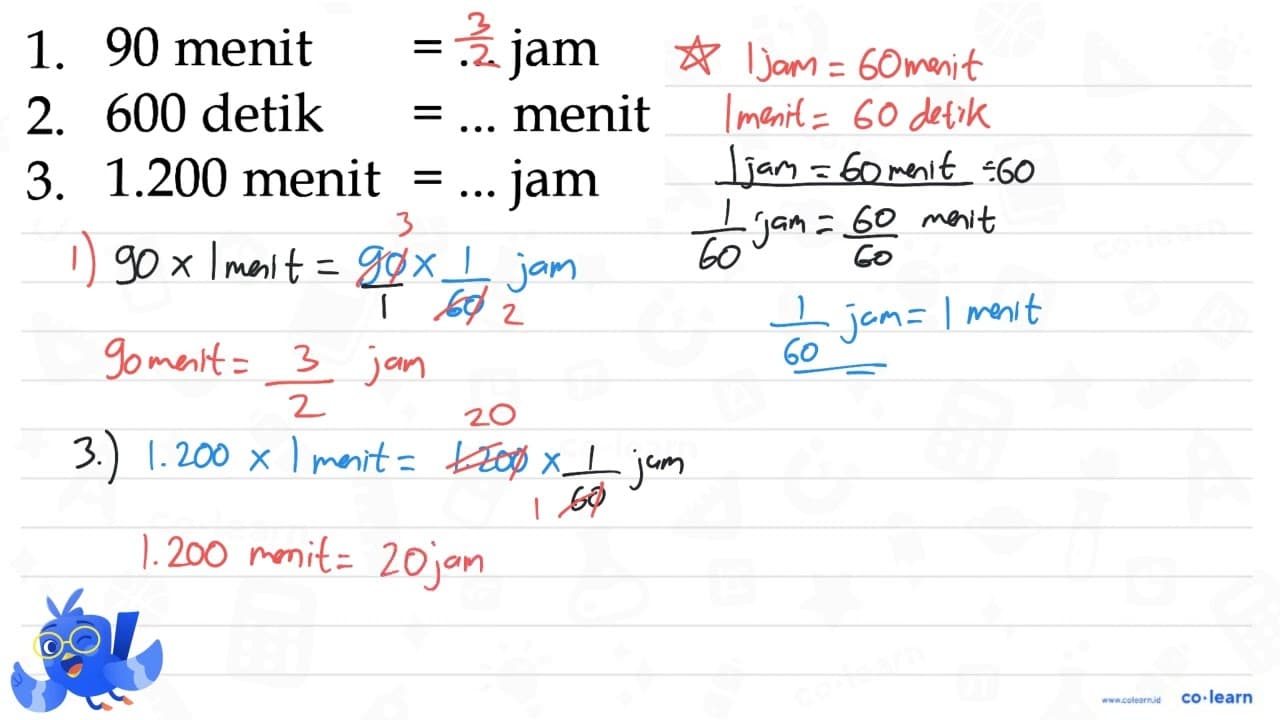 1. 90 menit = 3/2 ... jam
2. 600 detik = ... menit
3. 1.200 menit = ... jam
☆ 1 jam = 60 menit
1 menit = 60 detik
1 jam = 60 menit ÷60
1/60 jam = 60/60 menit
1/60 jam = 1 menit
1) 90 x 1 menit = 90/1 x 1/60 jam
3
2
90 menit = 3/2 jam
20
3.) 1.200 x 1 menit = 1.200 x 1/60 jam
1
1.200 menit = 20 jam
www.colearn.id co·learn